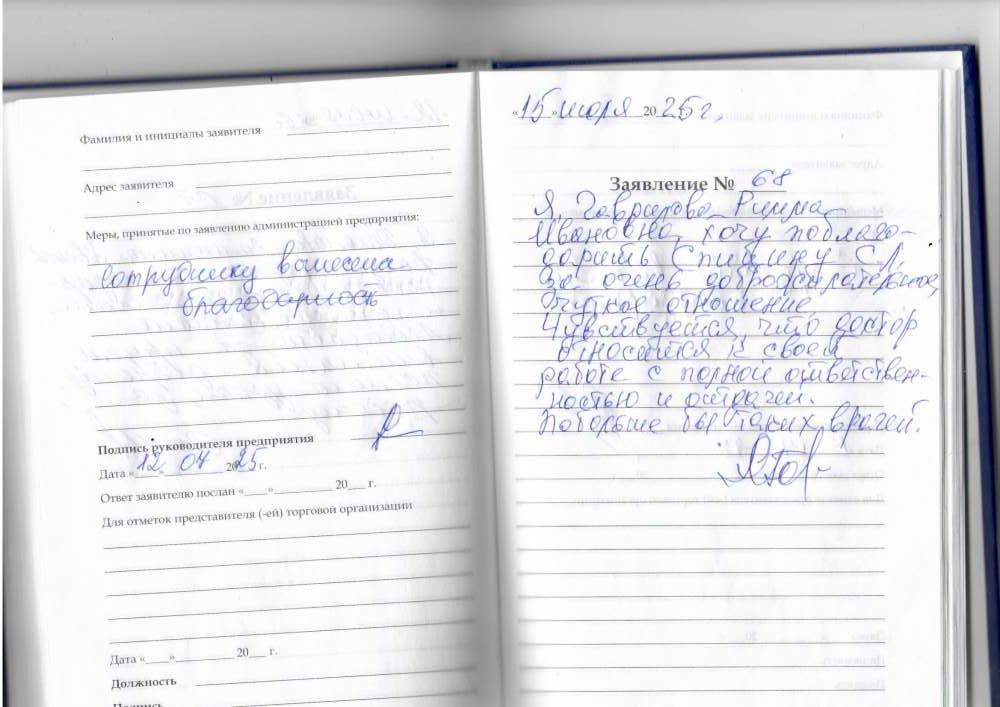 Фамилия и инициалы заявителя
Адрес заявителя
Меры, принятые по заявлению администрацией предприятия:
сотруднику вынесена
благодарность
Подпись руководителя предприятия
Дата «12 07 2025 г.
Ответ заявителю послан «____»__________ 20___ г.
Для отметок представителя (-ей) торговой организации
Дата «____»__________ 20___ г.
Должность
Подпись
«15» июля 2025 г.
Заявление № 68
Я, Гаврилова Римма
Ивановна, хочу поблаго-
дарить Спицину С.Л.
За очень доброжелательное,
чуткое отношение.
Чувствуется, что доктор
относится к своей
работе с полной ответствен-
ностью и отдачей.
Побольше бы таких врачей.